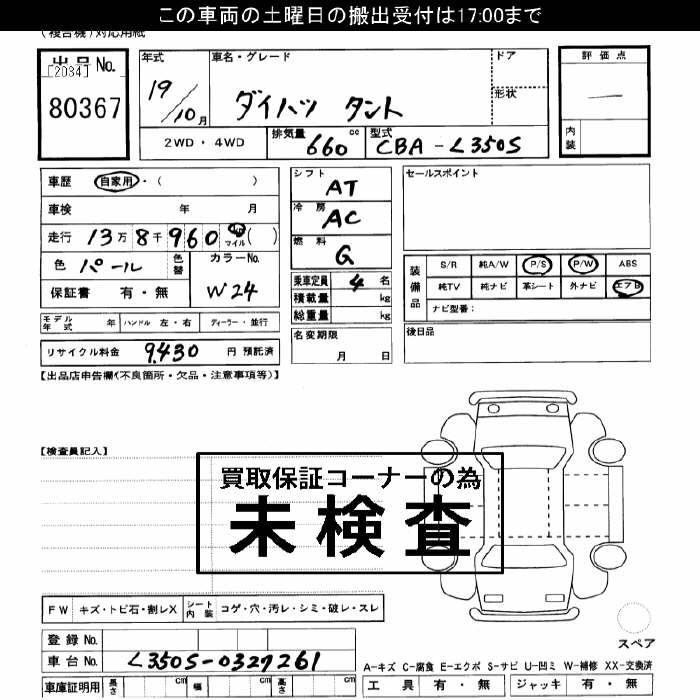 この車両の土曜日の搬出受付は17:00まで
(複合機)対応用紙
出品No.
[2034]
80367
年式
19/10月
車名・グレード
ダイハツ タント
ドア
形状
評価点
—
内装
2WD・4WD
排気量
660 cc
型式
CBA-L350S
車歴 自家用・( )
車検 年 月
走行 13万8千960 km マイル( )
色 パール
色替
カラーNo.
W24
保証書 有・無
シフト
AT
冷房
AC
燃料
G
乗車定員 4 名
積載量 kg
総重量 kg
セールスポイント
装備品
S/R 純A/W P/S P/W ABS
純TV 純ナビ 革シート 外ナビ エアB
ナビ型番:
モデル年式 年 ハンドル 左・右 ディーラー・並行
リサイクル料金 9,430 円 預託済
名変期限
月 日
後日品
【出品店申告欄(不良箇所・欠品・注意事項等)】
【検査員記入】
買取保証コーナーの為
未検査
FW キズ・トビ石・割レX シート内装 コゲ・穴・汚レ・シミ・破レ・スレ
登録No.
車台No. L350S-0327261
車庫証明用 長さ cm 幅 cm 高さ cm
スペア
A-キズ C-腐食 E-エクボ S-サビ U-凹ミ W-補修 XX-交換済
工具 有・無 ジャッキ 有・無